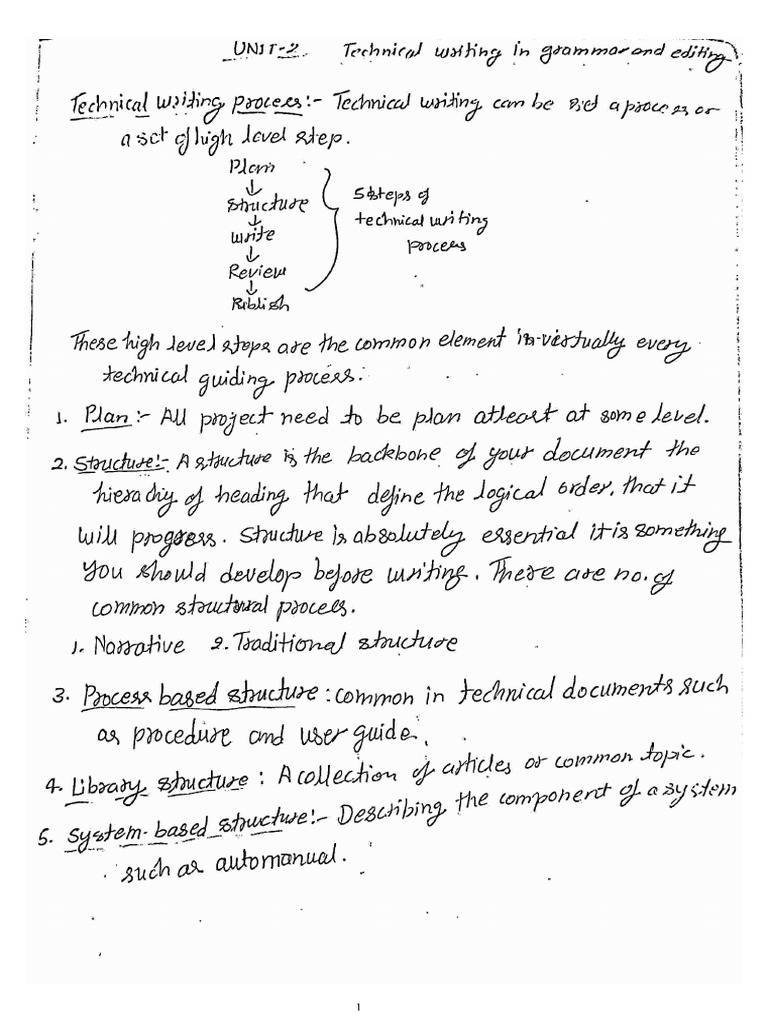 UNIT-2 Technical writing in grammar and editing
Technical writing process:- Technical writing can be a process or
a set of high level step.
Plan
↓
Structure
↓
write
↓
Review
↓
Publish
5 steps of
technical writing
process
These high level steps are the common element in virtually every
technical guiding process:
1. Plan:- All project need to be plan atleast at some level.
2. Structure:- A structure is the backbone of your document the
hierachiy of heading that define the logical order, that it
will progress. Structure is absolutely essential it is something
you should develop before writing. There are no. of
common structural process.
1. Narrative 2. Traditional structure
3. Process based structure: common in technical documents such
as procedure and user guide.
4. Library structure: A collection of articles or common topic.
5. System-based structure:- Describing the component of a system
such as automanual.
1